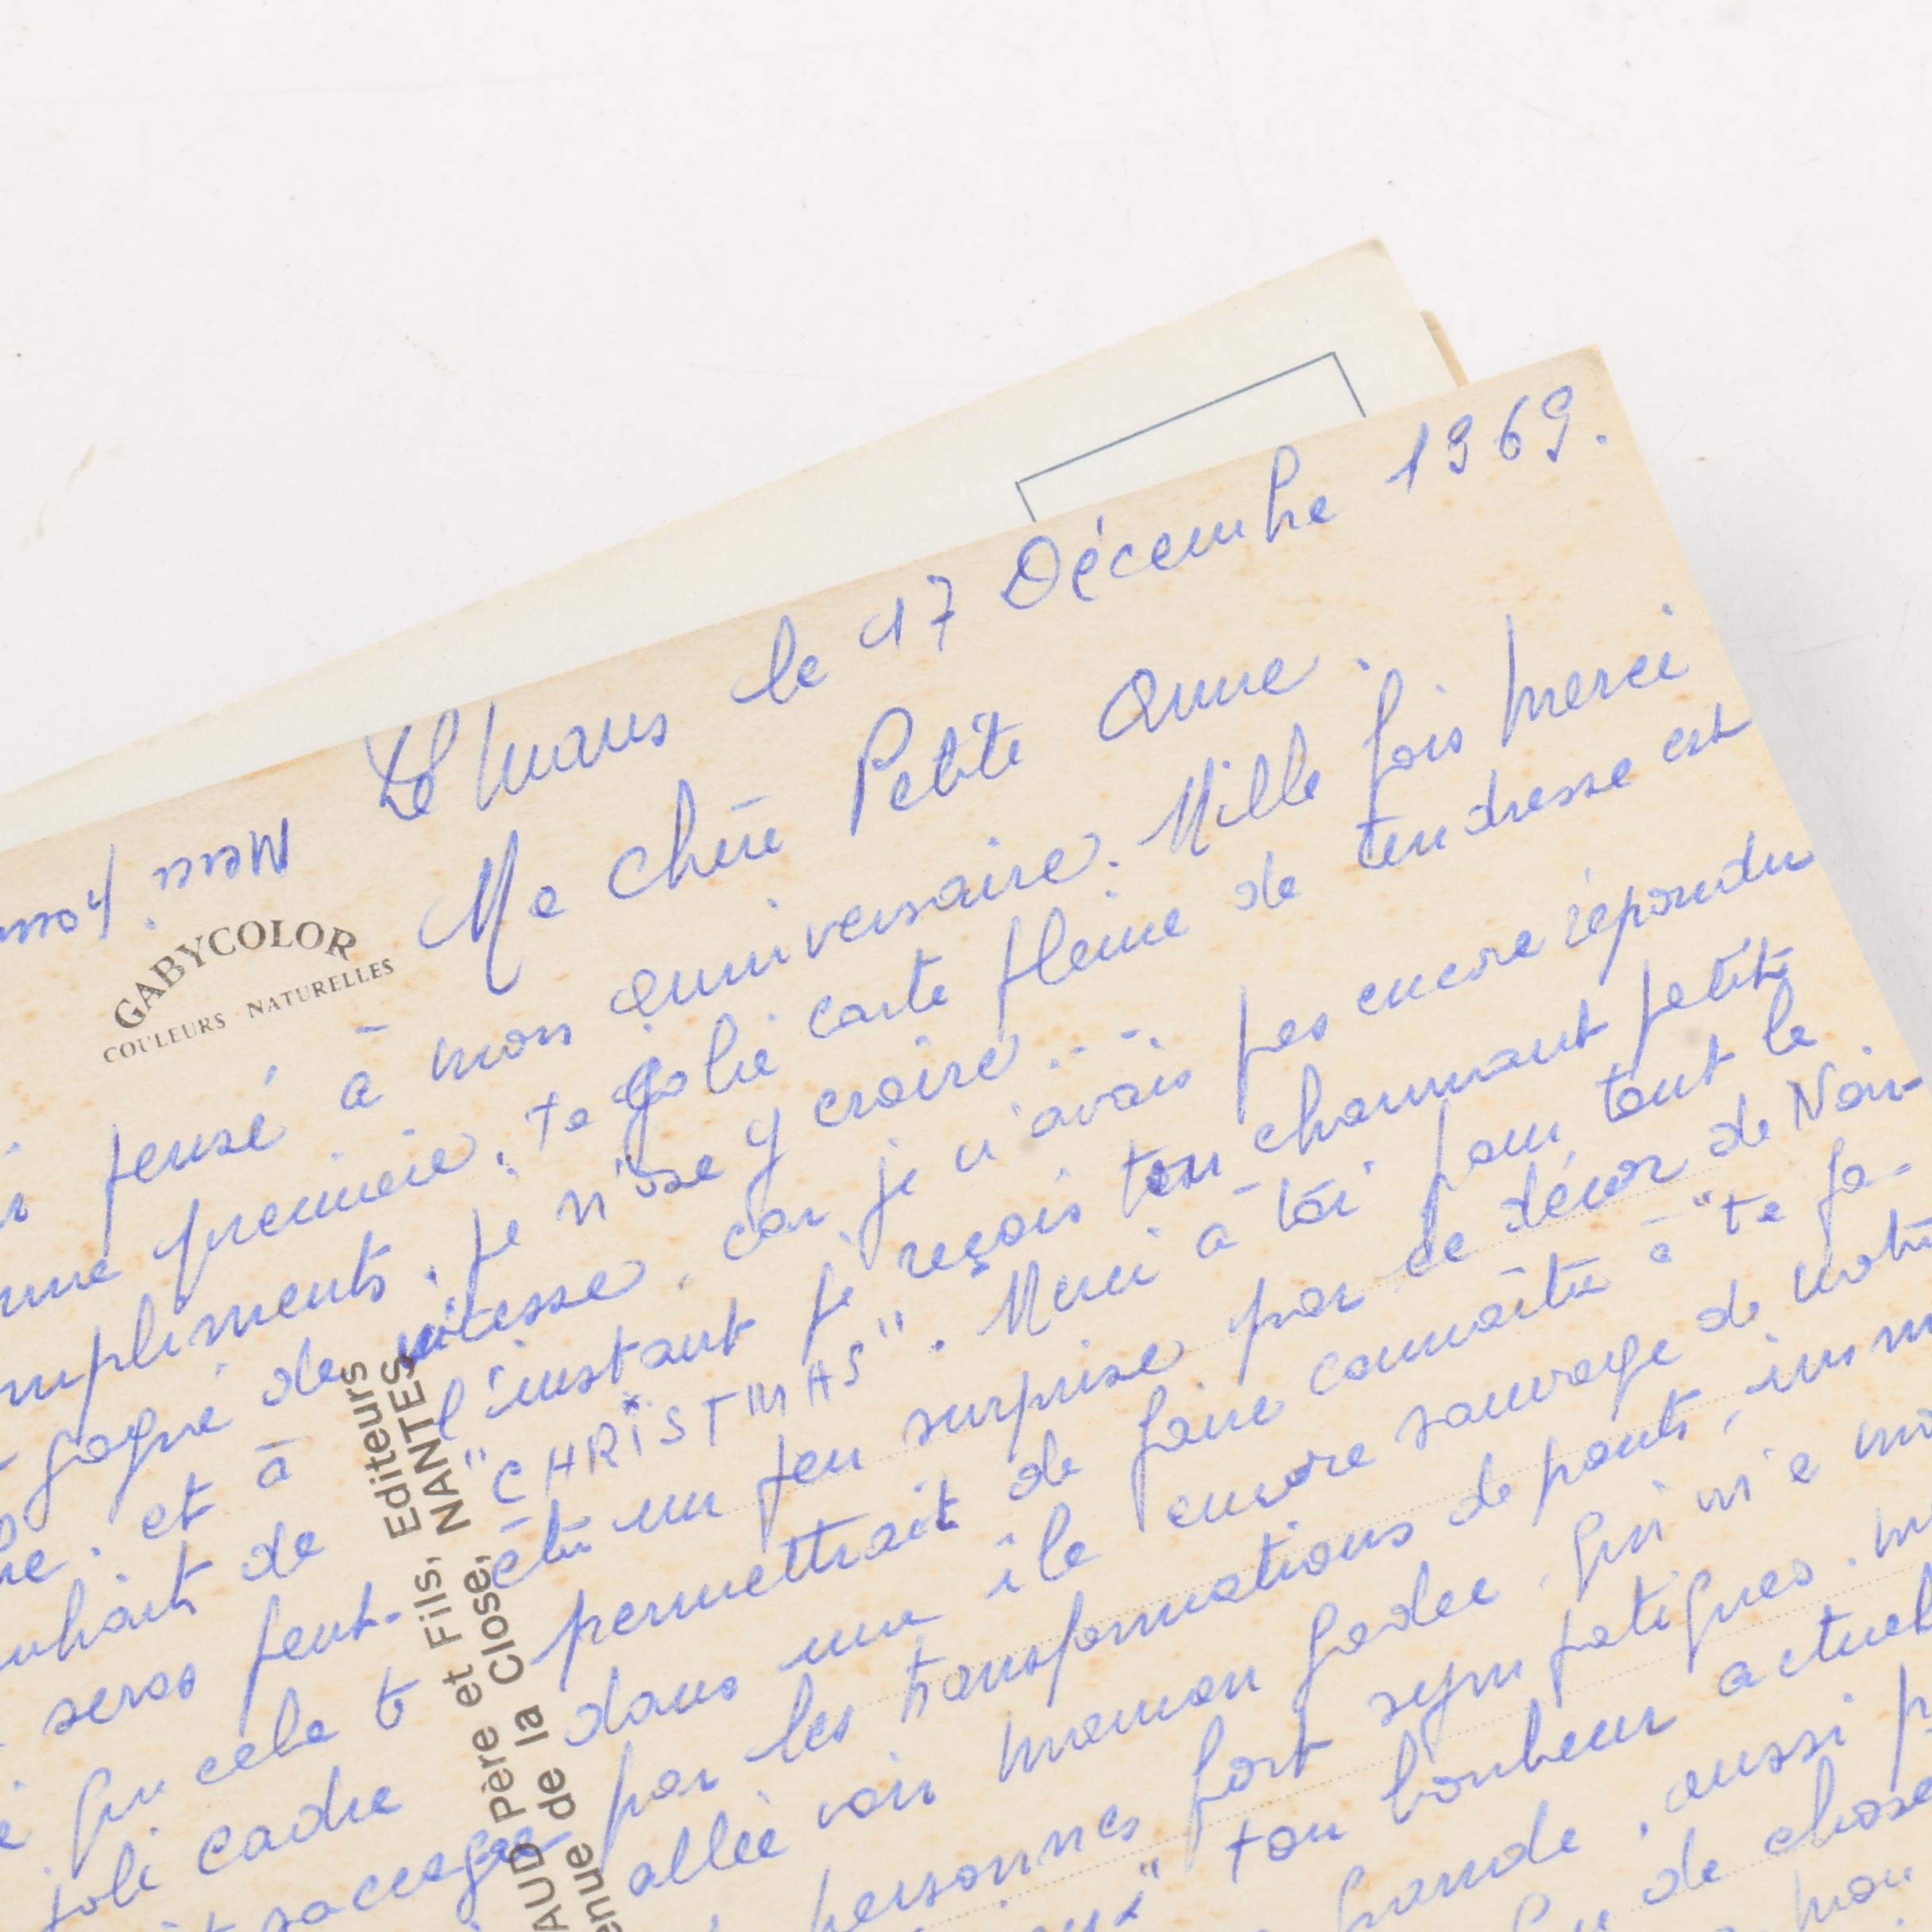 Le Mans le 17 Décembre 1969.
Ma chère Petite Anne.
GABYCOLOR
COULEURS NATURELLES
pensé à mon anniversaire. Mille fois merci
première. ta jolie carte pleine de tendresse est
mpliments. Je n'ose y croire....
gagné de vitesse. car je n'avais pas encore répondu
et à l'instant je reçois ton charmant petit
de "CHRISTMAS". Merci à toi pour tout le
seras peut-être un peu surprise par ce décor de Noir-
qu cela te permettrait de faire connaître à "ta fa-
joli cadre dans une île encore sauvage de notre
saccagée par les transformations de ponts, imm
allée voir maman Gadee. qui m'a
personnes fort sympatiques.
ton bonheur actuel
grande. aussi
de chose
mon
Merci. pour
Editeurs
Père et Fils, NANTES
AUD
enue de la Close,